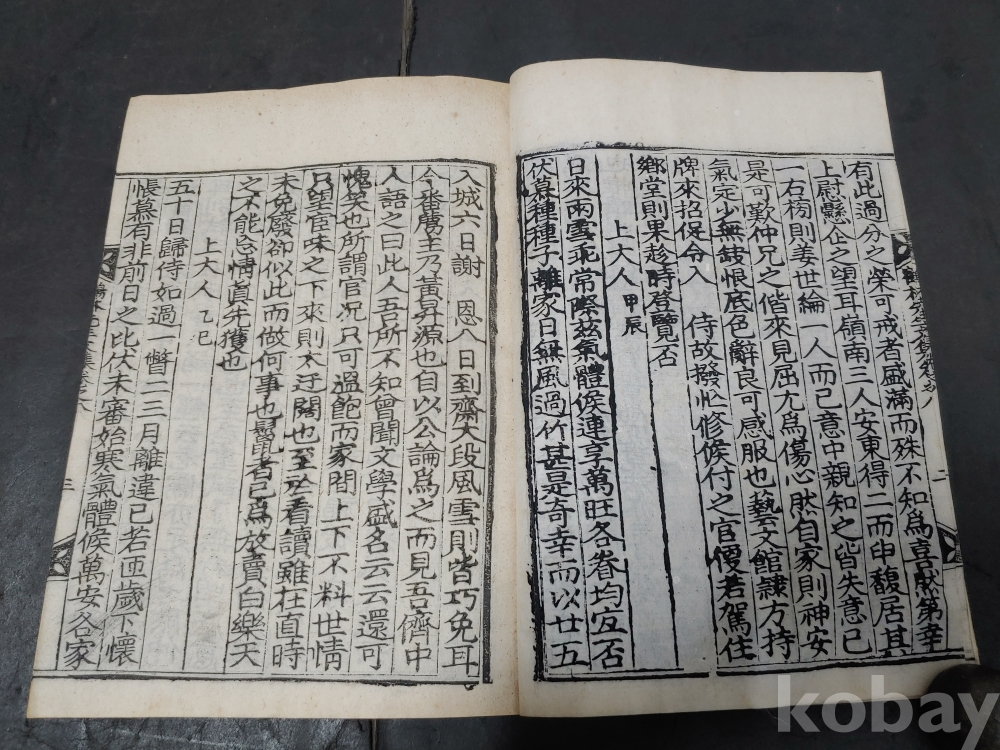 有此過分之榮可戒者盛滿而殊不知爲喜猷第幸
上慰懸企之望耳嶺南三人安東得二而申馥居其
一右榜則姜世綸一人而已意中親知之皆失意已
是可歎仲兄之偕來見屈尤爲傷心然自家則神安
氣定少無缺恨底色辭良可感服也藝文館隷方持
牌來招促令入 侍故撥忙修候付之官便若駕住
鄉堂則果趁時登覽否
上大人 甲辰
日來雨雪乖常際玆氣體候連享萬旺各眷均宜否
伏菶種種子離家日無風過竹甚是奇幸而以廿五
入城六日謝 恩八日到齋大段風雪則皆巧免耳
今番薦主乃黃昇源也自以公論爲之而見吾儕中
人語之曰此人吾所不知曾聞文學盛名云云還可
愧笑也所謂官況只可溫飽而家間上下不料世情
只望宦味之下來則不亦迂闊也至於看讀雖在直時
未免廢却似此而做何事也鬣者已爲放賣白樂天
之不能忘情眞先獲也
上大人 乙巳
五十日歸侍如過一瞥二三月離違已若匝歲下懷
悵慕有非前日之比伏未審始寒氣體候萬安各家
二
三
kobay